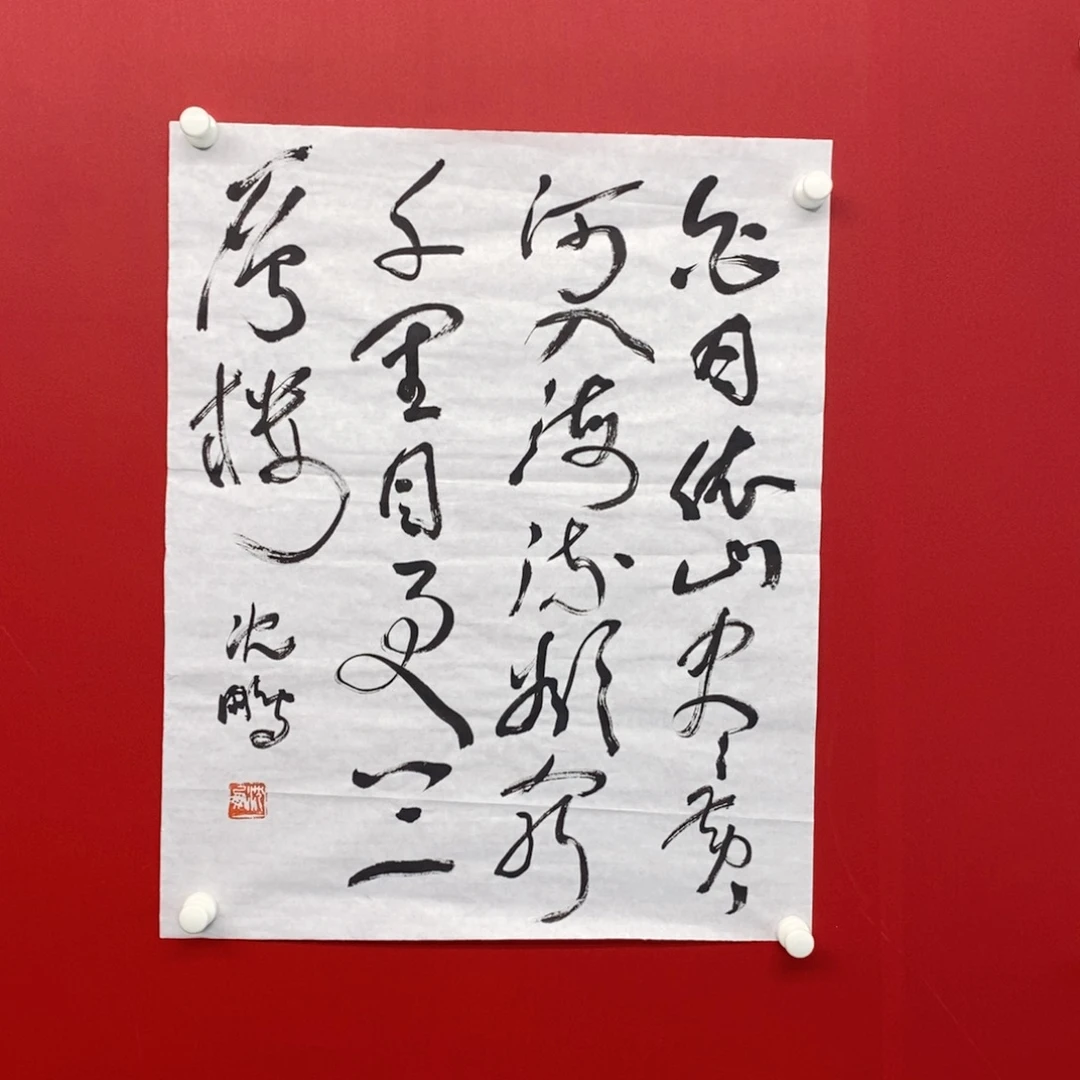 白日依山尽黄
河入海流欲窮
千里目更上一
層樓
沈鹏